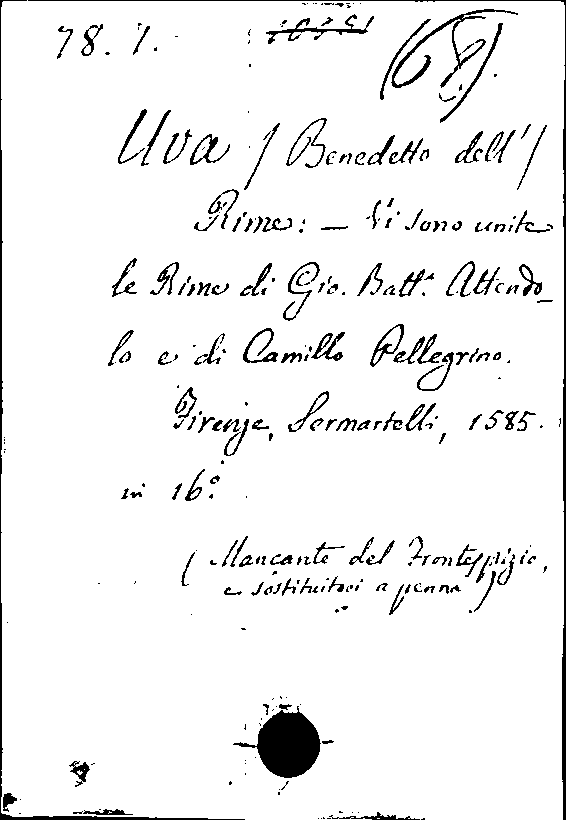 78. 7. (68).
Uva / Benedetto dell'/
Rime: — Vi sono unite
le Rime di Gio. Batt.ª Attendo_
lo e di Camillo Pellegrino.
Firenze, Sermartelli, 1585.
in 16.º
(Mancante del Frontespizio,
e sostituitovi a penna)